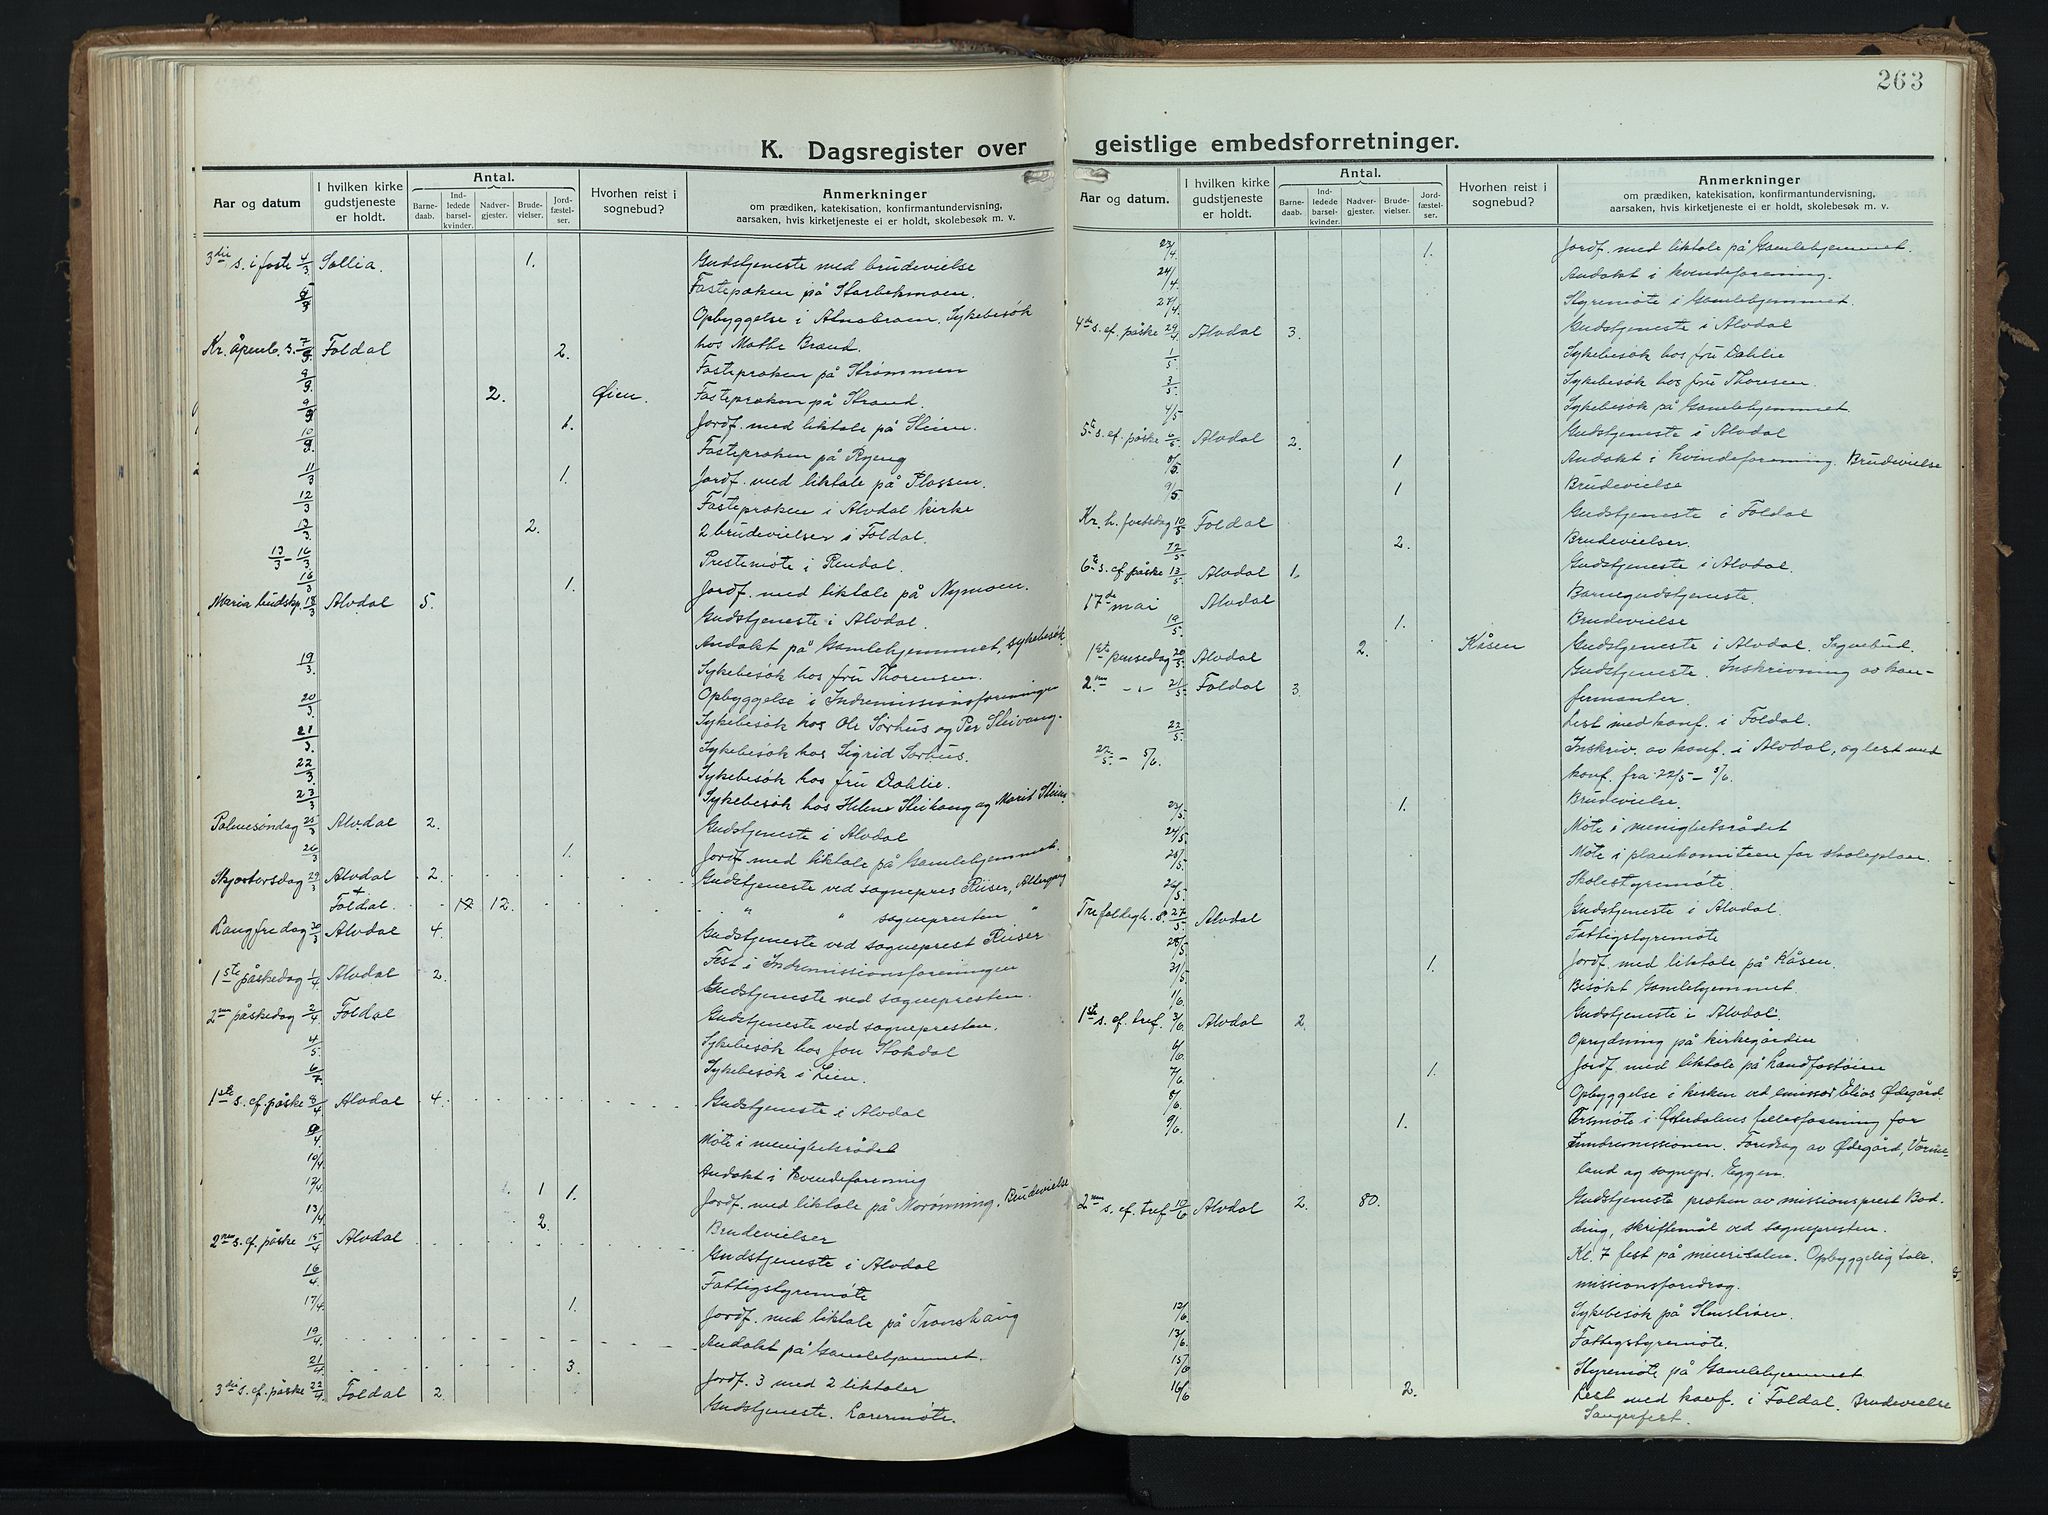 263
K. Dagsregister over geistlige embedsforretninger.
Aar og datum
I hvilken kirke gudstjeneste er holdt.
Antal.
Barnedaab.
Indledede barselkvinder.
Nadvergjester.
Brudevielser.
Jordfæstelser.
Hvorhen reist i sognebud?
Anmerkninger
om prædiken, katekisation, konfirmantundervisning,
aarsaken, hvis kirketjeneste ei er holdt, skolebesøk m. v.
3die s. i faste 4/3 Sollia. 1. Gudstjeneste med brudevielse
Fastepræken på
Opbyggelse i Sykebesök
Kr. åpenb. s. 7/3 Foldal 2. hos Mathe Brænd.
9/3 Fastepræken på Strømmen
9/3 2. Øien. Fastepræken på Strand.
1. Jordf. med liktale på Steien.
10/3 Fastepræken på Ryeng
11/3 1. Jordf. med liktale på Plassen.
12/3 Fastepræken i Alvdal kirke
13/3 2. 2 brudevielser i Foldal.
13/3 – 16/3 Prestemöte i Rendal.
16/3 1. Jordf. med liktale på Nymoen.
Maria budskp. 18/3 Alvdal 5. Gudstjeneste i Alvdal.
Andakt på Gamlehjemmet, sykebesök.
19/3 Sykebesök hos fru Thorensen.
20/3 Opbyggelse i Indremissionsforeningen
21/3 Sykebesök hos Ole Sørhus og Per Steivang.
22/3 Sykebesök hos Sigrid Sørhus.
Sykebesök hos fru Dahlie.
23/3 Sykebesök hos Helene Steivang og Marit Steien.
Palmesöndag 25/3 Alvdal 2. Gudstjeneste i Alvdal
26/3 1. Jordf. med liktale på Gamlehjemmet.
Skjærtorsdag 29/3 Alvdal 2. Gudstjeneste ved sogneprest Riiser, Altergang
+ Foldal. 12 12. " " sognepresten "
Langfredag 30/3 Alvdal 4. Gudstjeneste ved sogneprest Riiser
Fest i Indremissionsforeningen
1ste påskedag 1/4 Alvdal 2. Gudstjeneste ved sognepresten.
2nen påskedag 2/4 Foldal Gudstjeneste ved sognepresten.
4/5 Sykebesök hos Jon Stokdal
6/7 Sykebesök i Lien.
1ste s. ef. påske 8/4 Alvdal 4. Gudstjeneste i Alvdal
9/4. Möte i menighetsrådet
10/4. Andakt i kvindeforening
12/4 1 1. Jordf. med liktale på Morønning. Brudevielse
13/4 2. Brudevielser
2nen s. ef. påske 15/4 Alvdal Gudstjeneste i Alvdal
16/4. Fattigstyremöte
17/4. 1. Jordf. med liktale på Tronshaug
19/4. Andakt på Gamlehjemmet.
21/4. 3. Jordf. 3 med 2 liktaler
3die s. ef. påske 22/4 Foldal 2. Gudstjeneste. Lærermöte.
Aar og datum.
I hvilken kirke gudstjeneste er holdt.
Antal.
Barnedaab.
Indledede barselkvinder.
Nadvergjester.
Brudevielser.
Jordfæstelser.
Hvorhen reist i sognebud?
Anmerkninger
om prædiken, katekisation, konfirmantundervisning,
aarsaken, hvis kirketjeneste ei er holdt, skolebesøk m. v.
23/4. 1. Jordf. med liktale på Gamlehjemmet.
24/4 Andakt i kvindeforening.
28/4. Styremöte i Gamlehjemmet.
4de s. ef. påske 29/4 Alvdal 3. Gudstjeneste i Alvdal
1/5 Sykebesök hos fru Dahlie
3/5. Sykebesök hos fru Thoresen
4/5 Sykebesök på Gamlehjemmet.
5te s. ef. påske 6/5 Alvdal 2. Gudstjeneste i Alvdal
8/5 1 Andakt i kvindeforening. Brudevielse
9/5 1 Brudevielse
Kr. h. fartsdag 10/5 Foldal Gudstjeneste i Foldal
12/5 2. Brudevielser.
6te s. ef. påske 13/5 Alvdal 1. Gudstjeneste i Alvdal.
17de mai Alvdal Barnegudstjeneste.
19/5. 1. Brudevielse
1ste pinsedag 20/5 Alvdal 2. Kåsen Gudstjeneste i Alvdal. Sognebud.
2nen -"- 21/5 Foldal 3. Gudstjeneste. Inskrivning av konfirmanter.
22/5. Lest med konf. i Foldal.
22/5. – 5/6. Inskriv. av konf. i Alvdal, og lest med
konf. fra 22/5 – 5/6.
23/5. 1. Brudevielse.
24/5. Möte i menighetsrådet
25/5. Möte i plankomiteen for skoleplan.
26/5. Skolestyremöte.
Trefoldigh. s. 27/5 Alvdal Gudstjeneste i Alvdal.
28/5 Fattigstyremöte
31/5. 1. Jordf. med liktale på Kåsen.
1/6. Besökt Gamlehjemmet.
1ste s. ef. tref. 3/6 Alvdal 2. Gudstjeneste i Alvdal.
6/6. Oprydning på kirkegården
7/6. 1. Jordf. med liktale på Landfastöien
8/6. Opbyggelse i kirken ved emissær Elias Ødegård.
9/6. 1. Årsmöte i Østerdalens fellesforening for
Indremissionen. Foredrag av Ødegård,
land og sognepr. Eggen.
2nen s. ef. tref. 10/6 Alvdal 2. 80. Gudstjeneste præken av missionsprest Bodding, skriftemål ved sognepresten.
Kl. 7 fest på meierisalen. Opbyggelig tale.
missionsforedrag.
12/6 Sykebesök på
13/6. Fattigstyremöte.
15/6 Styremöte på Gamlehjemmet
16/6 2. Lest med konf. i Foldal. Brudevielse
Sangerfest.